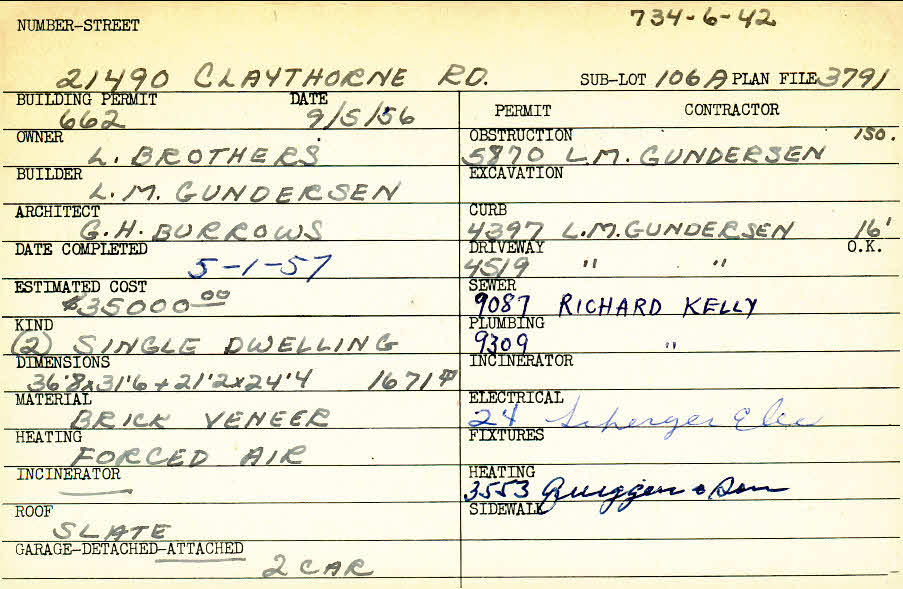 734-6-42
NUMBER-STREET
21490 CLAYTHORNE RD. SUB-LOT 106A PLAN FILE 3791
BUILDING PERMIT DATE
662 9/5/56
OWNER
L. BROTHERS
BUILDER
L.M. GUNDERSEN
ARCHITECT
G.H. BURROWS
DATE COMPLETED
5-1-57
ESTIMATED COST
$35000.00
KIND
(2) SINGLE DWELLING
DIMENSIONS
36'8x31'6 + 21'2x24'4 1671
MATERIAL
BRICK VENEER
HEATING
FORCED AIR
INCINERATOR
ROOF
SLATE
GARAGE-DETACHED-ATTACHED
2 CAR
PERMIT CONTRACTOR
OBSTRUCTION 150.
5870 L.M. GUNDERSEN
EXCAVATION
CURB
4397 L.M. GUNDERSEN 16'
DRIVEWAY O.K.
4519 " "
SEWER
9087 RICHARD KELLY
PLUMBING
9309 "
INCINERATOR
ELECTRICAL
24 Elec
FIXTURES
HEATING
3553 & Son
SIDEWALK